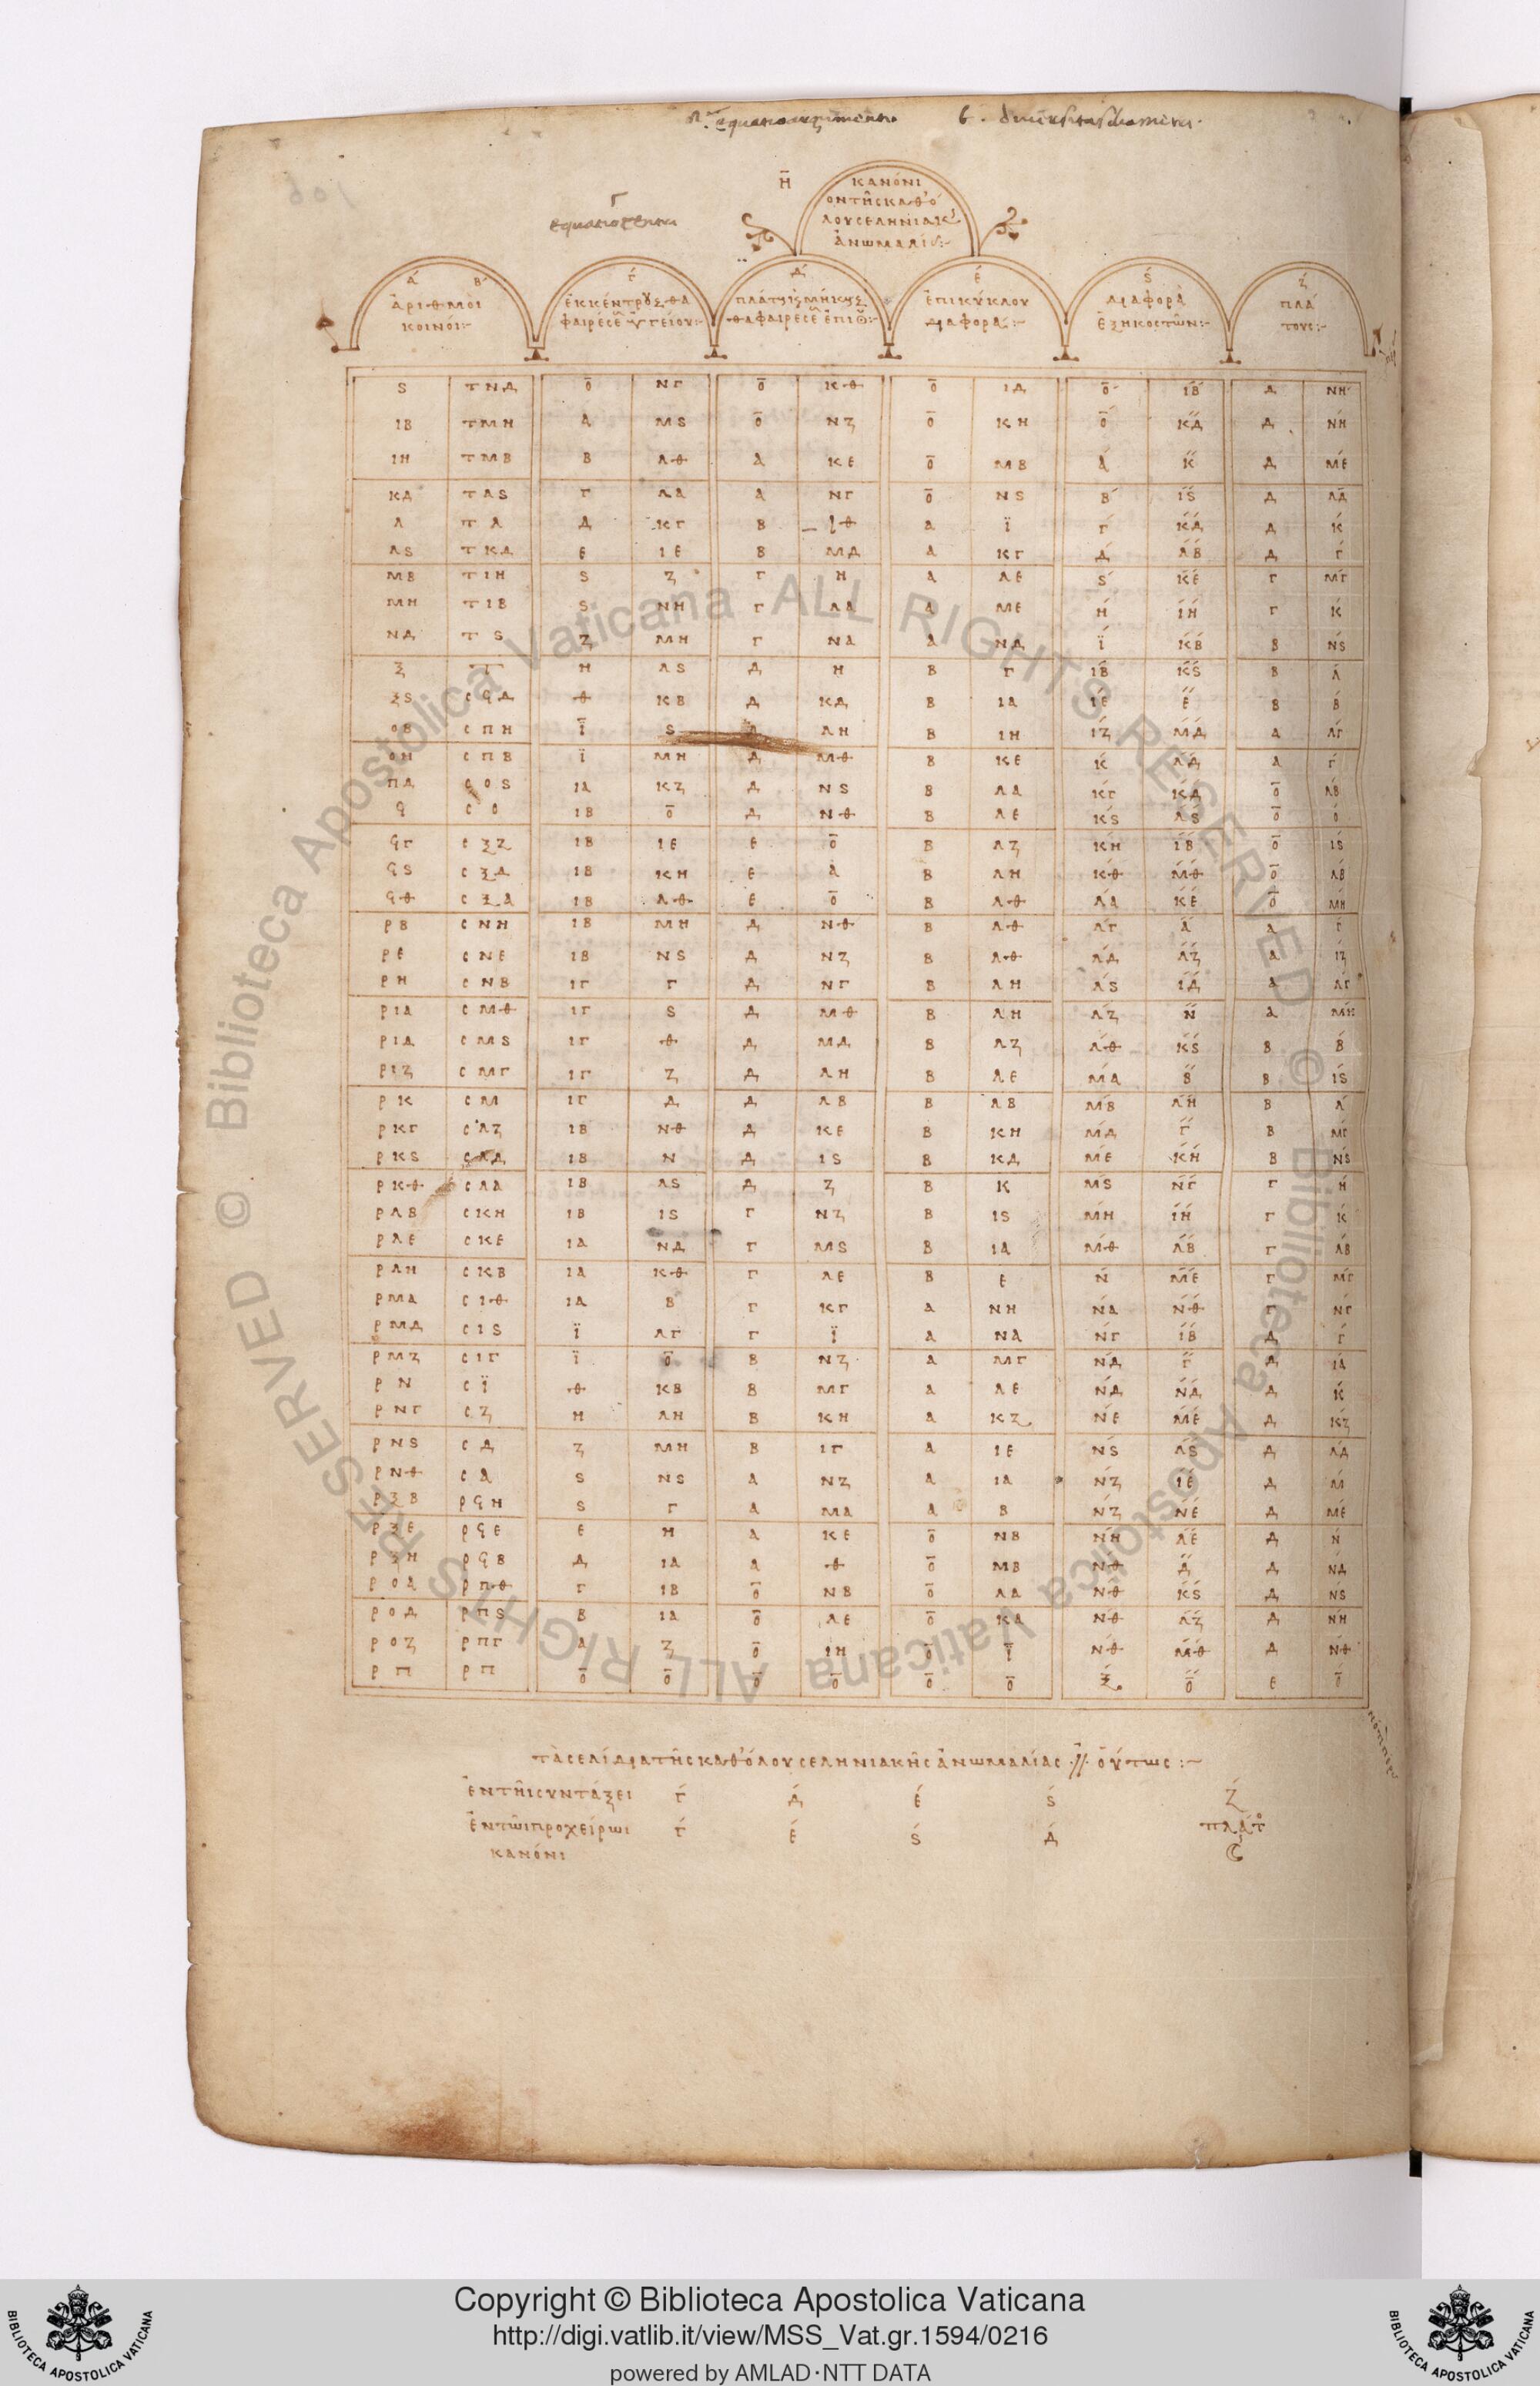 Η̄
ΚΑΝΌΝΙ
ΟΝ ΤΗ͂Σ ΚΑΘΌ
ΛΟΥ ΣΕΛΗΝΙΑΚ
ἈΝΩΜΑΛΊ
Α Β Γ Δ Ε Ϛ Ζ
ἈΡΙΘΜΟῚ ἘΚΚΕΝΤΡ ΠΛΆΤ ΜΉΚ ἘΠΙΚΎΚΛΟΥ ΔΙΑΦΟΡᾺ ΠΛΆ
ΚΟΙΝΟΊ ΔΙΑΦΟΡΆ ἘΞΗΚΟΣΤΩ͂Ν ΤΟΥΣ
Ϛ ΤΝΔ Ο ΝΓ Ο ΚΘ Ο ΙΔ Ο ΙΒ Δ ΝΗ
ΙΒ ΤΜΗ Α ΜϚ Ο ΝΖ Ο ΚΗ Ο ΚΔ Δ ΝΗ
ΙΗ ΤΜΒ Β ΛΘ Α ΚΕ Ο ΜΒ Α Κ Δ ΜΕ
ΚΔ ΤΛϚ Γ ΛΑ Α ΝΓ Ο ΝϚ Β ΙϚ Δ ΛΔ
Λ ΤΛ Δ ΚΓ Β ΙΘ Α Ϊ Γ ΚΔ Δ Κ
ΛϚ ΤΚΔ Ε ΙΕ Β ΜΔ Α ΚΓ Δ ΛΒ Δ Γ
ΜΒ ΤΙΗ Ϛ Ζ Γ Η Α ΛΕ Ϛ ΚΕ Γ ΜΓ
ΜΗ ΤΙΒ Ϛ ΝΗ Γ ΛΑ Α ΜΕ Η ΙΗ Γ Κ
ΝΔ ΤϚ Ζ ΜΗ Γ ΝΑ Α ΝΔ Ϊ ΚΒ Β ΝϚ
Ξ Τ Η ΛϚ Δ Η Β Γ ΙΒ ΚϚ Β Λ
ΞϚ ΣϞΔ Θ ΚΒ Δ ΚΔ Β ΙΑ ΙΕ Ε Β Β
ΟΒ ΣΠΗ Ϊ Ϛ Δ ΛΗ Β ΙΗ ΙΖ ΜΔ Α ΛΓ
ΟΗ ΣΠΒ Ϊ ΜΗ Δ ΜΘ Β ΚΕ Κ ΛΔ Α Γ
ΠΔ ΣΟϚ ΙΑ ΚΖ Δ ΝϚ Β ΛΑ ΚΓ ΚΔ Ο ΛΒ
Ϟ ΣΟ ΙΒ Ο Δ ΝΘ Β ΛΕ ΚϚ ΛϚ Ο Ο
ϞΓ ΣΞΖ ΙΒ ΙΕ Ε Ο Β ΛΖ ΚΗ ΙΒ Ο ΙϚ
ϞϚ ΣΞΔ ΙΒ ΚΗ Ε Α Β ΛΗ ΚΘ ΜΘ Ο ΛΒ
ϞΘ ΣΞΑ ΙΒ ΛΘ Ε Ο Β ΛΘ ΛΑ ΚΕ Ο ΜΗ
ΡΒ ΣΝΗ ΙΒ ΜΗ Δ ΝΘ Β ΛΘ ΛΓ Α Α Γ
ΡΕ ΣΝΕ ΙΒ ΝϚ Δ ΝΖ Β ΛΘ ΛΔ ΛΖ Α ΙΖ
ΡΗ ΣΝΒ ΙΓ Γ Δ ΝΓ Β ΛΗ ΛϚ ΙΔ Α ΛΓ
ΡΙΑ ΣΜΘ ΙΓ Ϛ Δ ΜΘ Β ΛΗ ΛΖ Ν Α ΜΗ
ΡΙΔ ΣΜϚ ΙΓ Θ Δ ΜΔ Β ΛΖ ΛΘ ΚϚ Β Β
ΡΙΖ ΣΜΓ ΙΓ Ζ Δ ΛΗ Β ΛΕ ΜΑ Β Β ΙϚ
ΡΚ ΣΜ ΙΓ Δ Δ ΛΒ Β ΛΒ ΜΒ ΛΗ Β Λ
ΡΚΓ ΣΛΖ ΙΒ ΝΘ Δ ΚΕ Β ΚΗ ΜΔ Γ Β ΜΓ
ΡΚϚ ΣΛΔ ΙΒ Ν Δ ΙϚ Β ΚΔ ΜΕ ΚΗ Β ΝϚ
ΡΚΘ ΣΛΑ ΙΒ ΛϚ Δ Ζ Β Κ ΜϚ ΝΓ Γ Η
ΡΛΒ ΣΚΗ ΙΒ ΙϚ Γ ΝΖ Β ΙϚ ΜΗ ΙΗ Γ Κ
ΡΛΕ ΣΚΕ ΙΑ ΝΔ Γ ΜϚ Β ΙΑ ΜΘ ΛΒ Γ ΛΒ
ΡΛΗ ΣΚΒ ΙΑ ΚΘ Γ ΛΕ Β Ε Ν ΜΕ Γ ΜΓ
ΡΜΑ ΣΙΘ ΙΑ Β Γ ΚΓ Α ΝΗ ΝΑ ΝΘ Γ ΝΓ
ΡΜΔ ΣΙϚ Ϊ ΛΓ Γ Ϊ Α ΝΑ ΝΓ ΙΒ Δ Γ
ΡΜΖ ΣΙΓ Ϊ Ο Β ΝΖ Α ΜΓ ΝΔ Γ Δ ΙΑ
ΡΝ ΣΪ Θ ΚΒ Β ΜΓ Α ΛΕ ΝΔ ΝΔ Δ Κ
ΡΝΓ ΣΖ Η ΛΗ Β ΚΗ Α ΚΖ ΝΕ ΜΕ Δ ΚΖ
ΡΝϚ ΣΔ Ζ ΜΗ Β ΙΓ Α ΙΕ ΝϚ ΛϚ Δ ΛΔ
ΡΝΘ ΣΑ Ϛ ΝϚ Α ΝΖ Α ΙΑ ΝΖ ΙΕ Δ Μ
ΡΞΒ ΡϞΗ Ϛ Γ Α ΜΑ Α Β ΝΖ ΝΕ Δ ΜΕ
ΡΞΕ ΡϞΕ Ε Η Α ΚΕ Ο ΝΒ ΝΗ ΛΕ Δ Ν
ΡΞΗ ΡϞΒ Δ ΙΑ Α Θ Ο ΜΒ ΝΘ Δ Δ ΝΔ
ΡΟΑ ΡΠΘ Γ ΙΒ Ο ΝΒ Ο ΛΑ ΝΘ ΚϚ Δ ΝϚ
ΡΟΔ ΡΠϚ Β ΙΑ Ο ΛΕ Ο ΚΑ ΝΘ ΛΖ Δ ΝΗ
ΡΟΖ ΡΠΓ Α Ζ Ο ΙΗ Ο Ϊ ΝΘ ΜΘ Δ ΝΘ
ΡΠ ΡΠ Ο Ο Ο Ο Ο Ο Ξ Ο Ε Ο
ΤᾺ ΣΕΛΊΔΙΑ ΤΗ͂Σ ΚΑΘΌΛΟΥ ΣΕΛΗΝΙΑΚΗ͂Σ ἈΝΩΜΑΛΊΑΣ ΟὝΤΩΣ :~
ἘΝ ΤΗ͂Ι ΣΥΝΤΆΞΕΙ Γ Δ Ε Ϛ Ζ
ἘΝ ΤΩ͂Ι ΠΡΟΧΕΊΡΩΙ Γ Ε Ϛ Δ ΠΛΆΤΟ
ΚΑΝΌΝΙ ☾
Copyright © Biblioteca Apostolica Vaticana
http://digi.vatlib.it/view/MSS_Vat.gr.1594/0216
powered by AMLAD·NTT DATA
BIBLIOTECA APOSTOLICA VATICANA
BIBLIOTECA APOSTOLICA VATICANA
© Biblioteca Apostolica Vaticana ALL RIGHTS RESERVED © Biblioteca Apostolica Vaticana ALL RIGHTS RESERVED